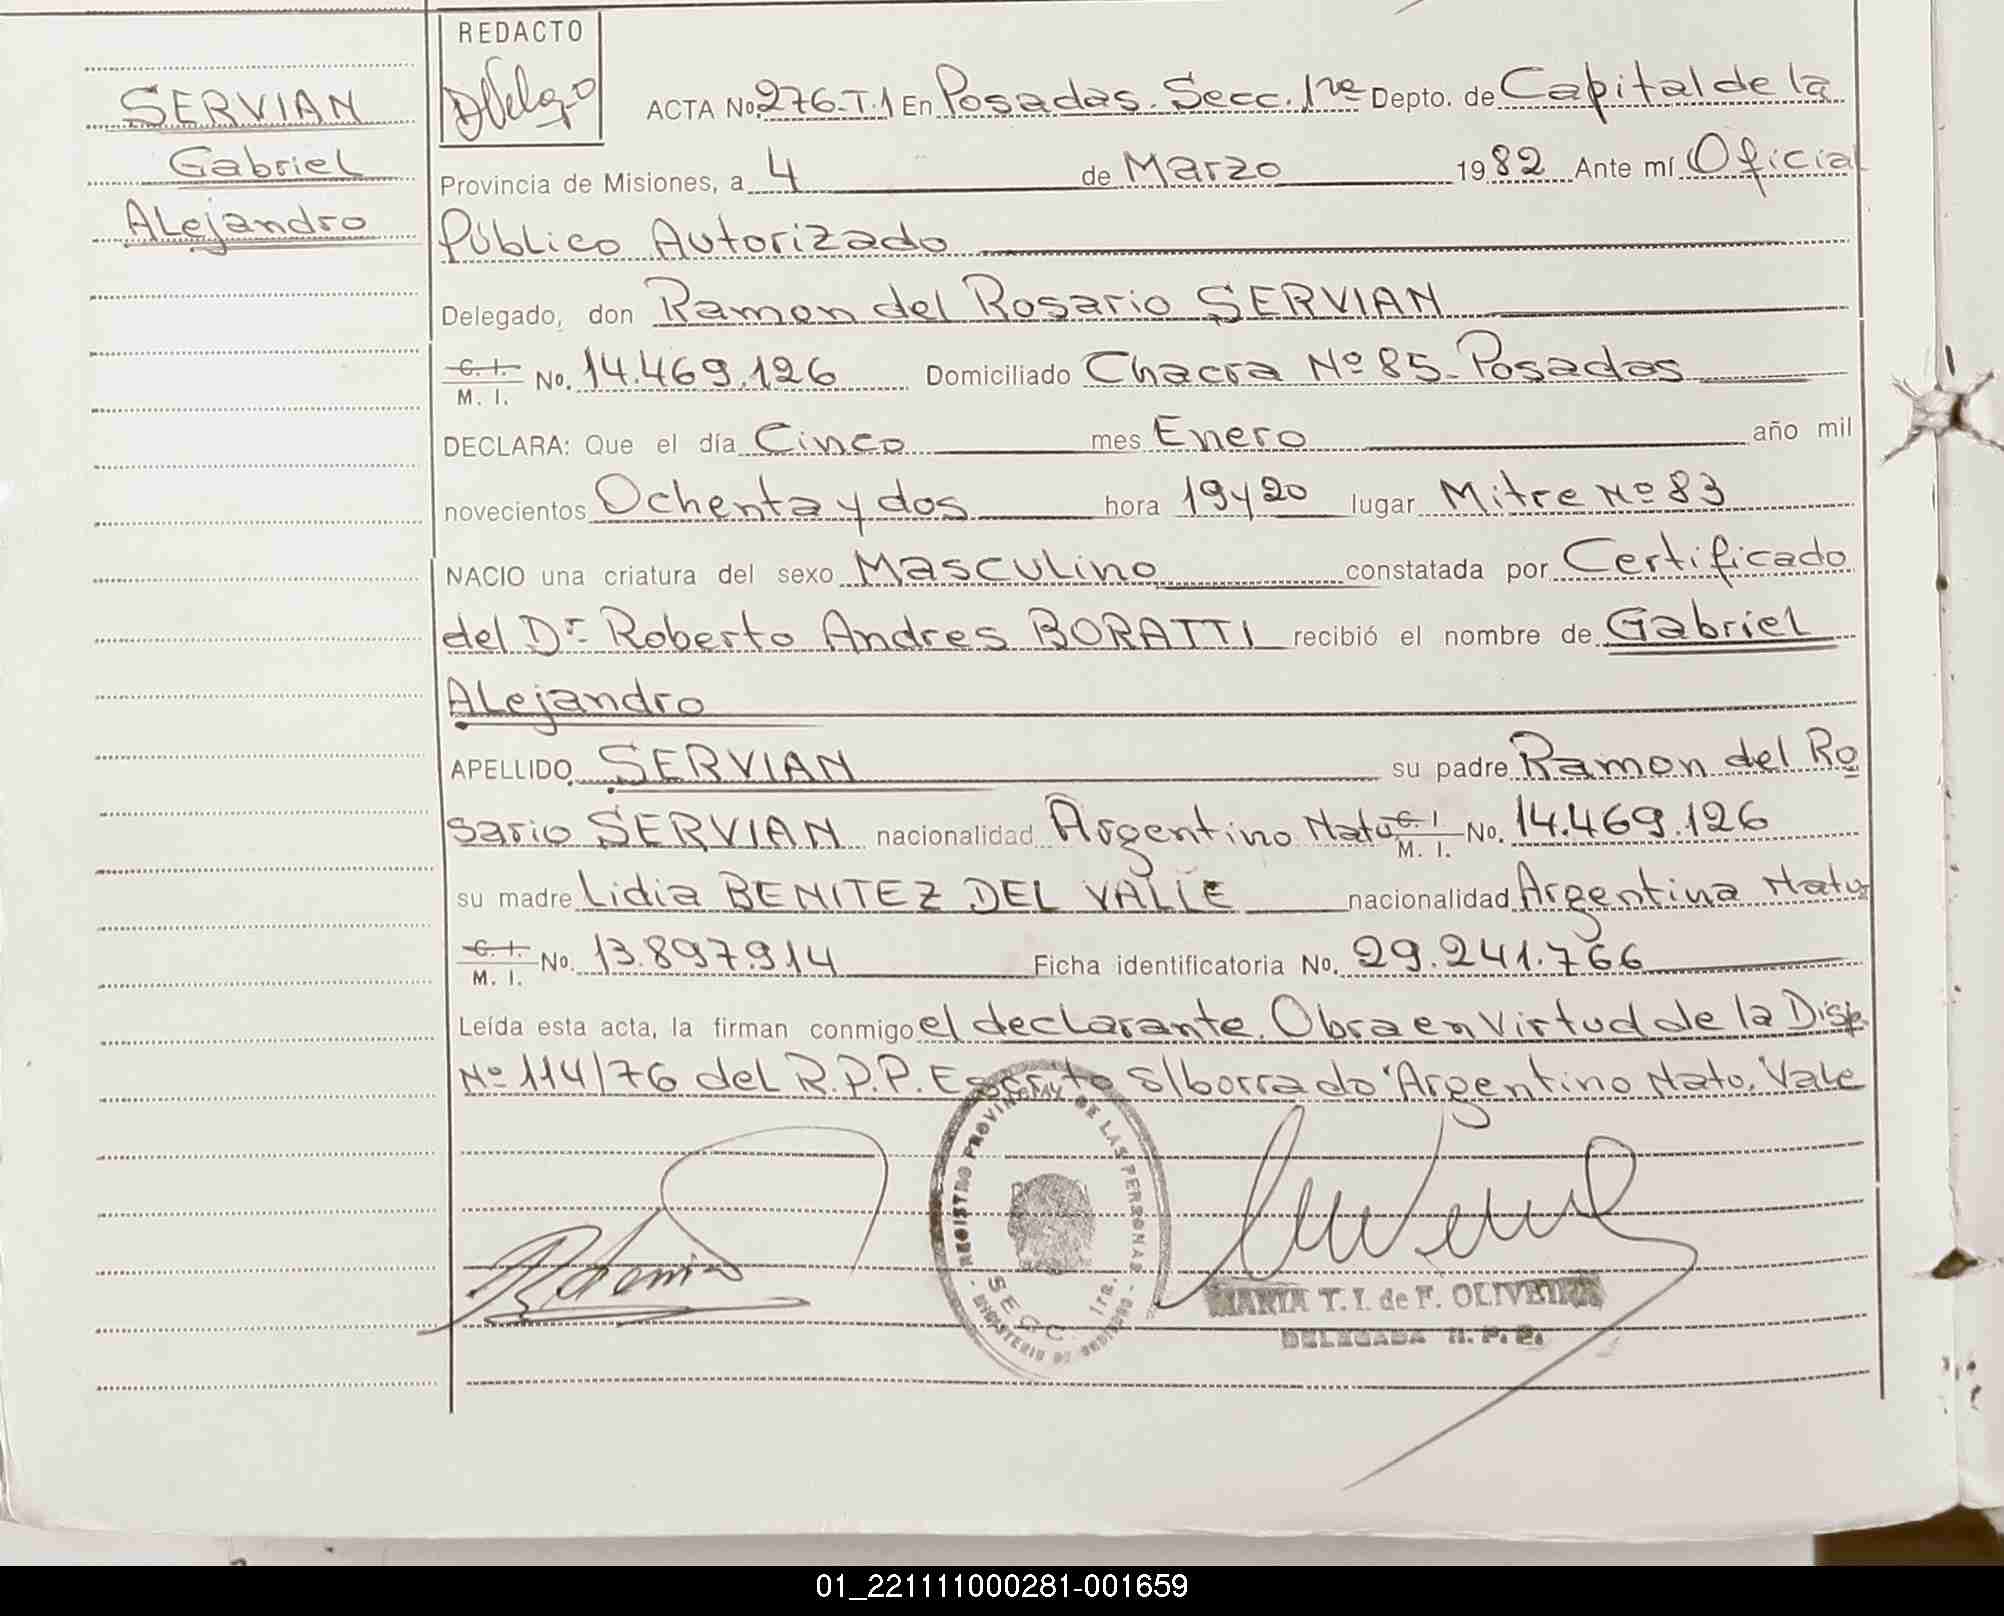 REDACTO
SERVIAN
Gabriel
ALejandro
ACTA No. 276-T.1 En Posadas. Secc. 1ra Depto. de Capital de la
Provincia de Misiones, a 4 de Marzo 1982 Ante mí Oficial
Público Autorizado
Delegado, don Ramon del Rosario SERVIAN
C. I. M. I. No. 14.469.126 Domiciliado Chacra Nº 85. Posadas
DECLARA: Que el día Cinco mes Enero año mil
novecientos Ochenta y dos hora 19 y 20 lugar Mitre Nº 83
NACIO una criatura del sexo Masculino constatada por Certificado
del Dr. Roberto Andres BORATTI recibió el nombre de Gabriel
ALejandro
APELLIDO SERVIAN su padre Ramon del Ro
sario SERVIAN nacionalidad Argentino Nato C. I. M. I. No. 14.469.126
su madre Lidia BENITEZ DEL VALLE nacionalidad Argentina Nato
C. I. M. I. No. 13.897.914 Ficha identificatoria No. 29.241.766
Leída esta acta, la firman conmigo el declarante. Obra en Virtud de la Disp.
Nº 114/76 del R.P.P. Escrito s/borrado "Argentino Nato. Vale
REGISTRO PROVINCIAL DE LAS PERSONAS
SECC. 1ra.
MINISTERIO DE GOBIERNO
MARIA T. I. de F. OLIVEIRA
DELEGADA R. P. P.
01_221111000281-001659